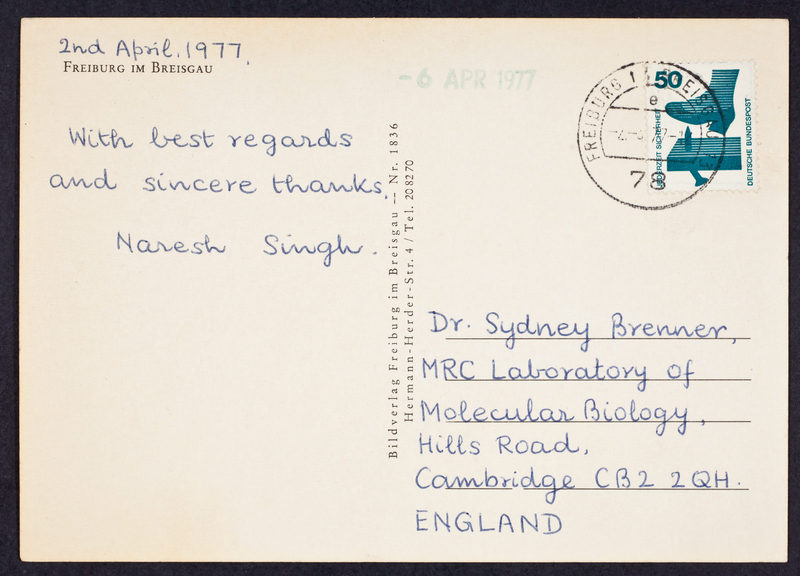 2nd April, 1977.
FREIBURG IM BREISGAU
With best regards
and sincere thanks.
Naresh Singh.
Bildverlag Freiburg im Breisgau — Nr. 1836
Hermann-Herder-Str. 4 / Tel. 208270
-6 APR 1977
FREIBURG
78
e
50
DEUTSCHE BUNDESPOST
Dr. Sydney Brenner,
MRC Laboratory of
Molecular Biology,
Hills Road,
Cambridge CB2 2QH.
ENGLAND